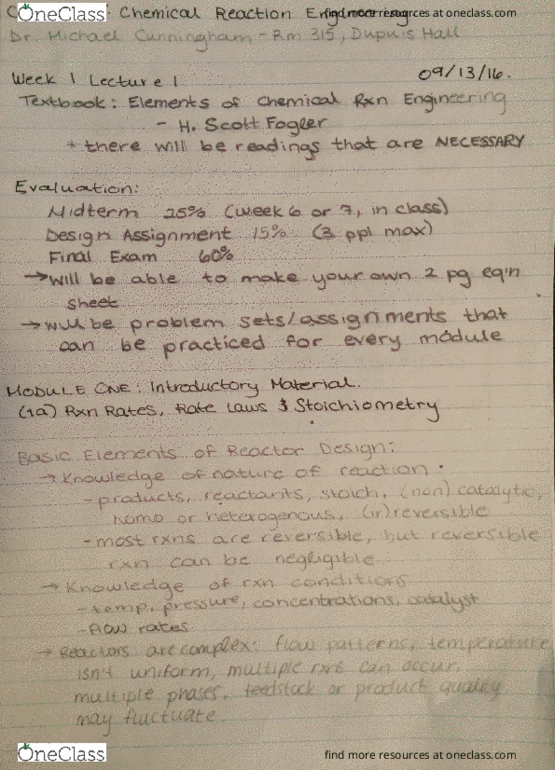 OneClass
find more resources at oneclass.com
: Chemical Reaction Engineering
Dr. Michael Cunningham - Rm 315, Dupuis Hall
Week 1 Lecture 1 09/13/16.
Textbook: Elements of Chemical Rxn Engineering
- H. Scott Fogler
* there will be readings that are NECESSARY
Evaluation:
Midterm 25% (week 6 or 7, in class)
Design Assignment 15% (3 ppl max)
Final Exam 60%
→ will be able to make your own 2 pg eq'n
sheet
→ will be problem sets/assignments that
can be practiced for every module
MODULE ONE: Introductory Material.
(1a) Rxn Rates, Rate Laws & Stoichiometry
Basic Elements of Reactor Design:
→ Knowledge of nature of reaction.
- products, reactants, stoich, (non) catalytic,
homo or heterogenous, (ir)reversible
- most rxns are reversible, but reversible
rxn can be negligible
→ Knowledge of rxn conditions
- temp, pressure, concentrations, catalyst
- flow rates
→ Reactors are complex: flow patterns, temperature
isn't uniform, multiple rxns can occur,
multiple phases, feedstock or product quality
may fluctuate
OneClass
find more resources at oneclass.com